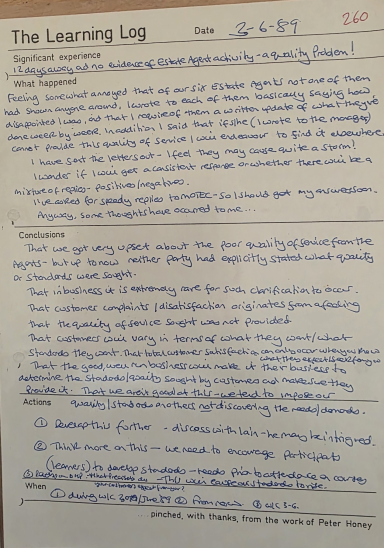 260
The Learning Log
Date 3-6-89
Significant experience
12 days away and no evidence of Estate Agent activity - a quality Problem!
What happened
Feeling somewhat annoyed that of our six Estate Agents not one of them
had shown anyone around, I wrote to each of them basically saying how
disappointed I was, and that I require of them a written update of what they've
done week by week. In addition I said that if s/he (I wrote to the manager)
cannot provide this quality of service I will endeavour to find it elsewhere.
I have sent the letters out - I feel they may cause quite a storm!
I wonder if I will get a consistent response or whether there will be a
mixture of replies - positives/negatives.
I've asked for speedy replies to so I should get my answer soon.
Anyway, some thoughts have occurred to me...
Conclusions
That we got very upset about the poor quality of service from the
Agents - but up to now neither party had explicitly stated what quality
or standards were sought.
That in business it is extremely rare for such clarification to occur.
That customer complaints / disatisfaction originates from a feeling
that the quality of service sought was not provided
That customers will vary in terms of what they want / what
standards they want. That total customer satisfaction can only occur when you know
what they expect
That the good, well run business will make it their business to
determine the standards/quality sought by customers and make sure they
provide it. That we aren't good at this - we tend to impose our
quality/standards on others not discovering the needs/demands.
Actions
① Develop this further - discuss with Iain - he may be intrigued.
② Think more on this - we need to encourage participants
(learners) to develop standards - needs prior to attendance on courses
③ - This will cause our standards to rise.
When
① during w/c 5/June 89 ② from now ③ w/c 5-6.
....pinched, with thanks, from the work of Peter Honey